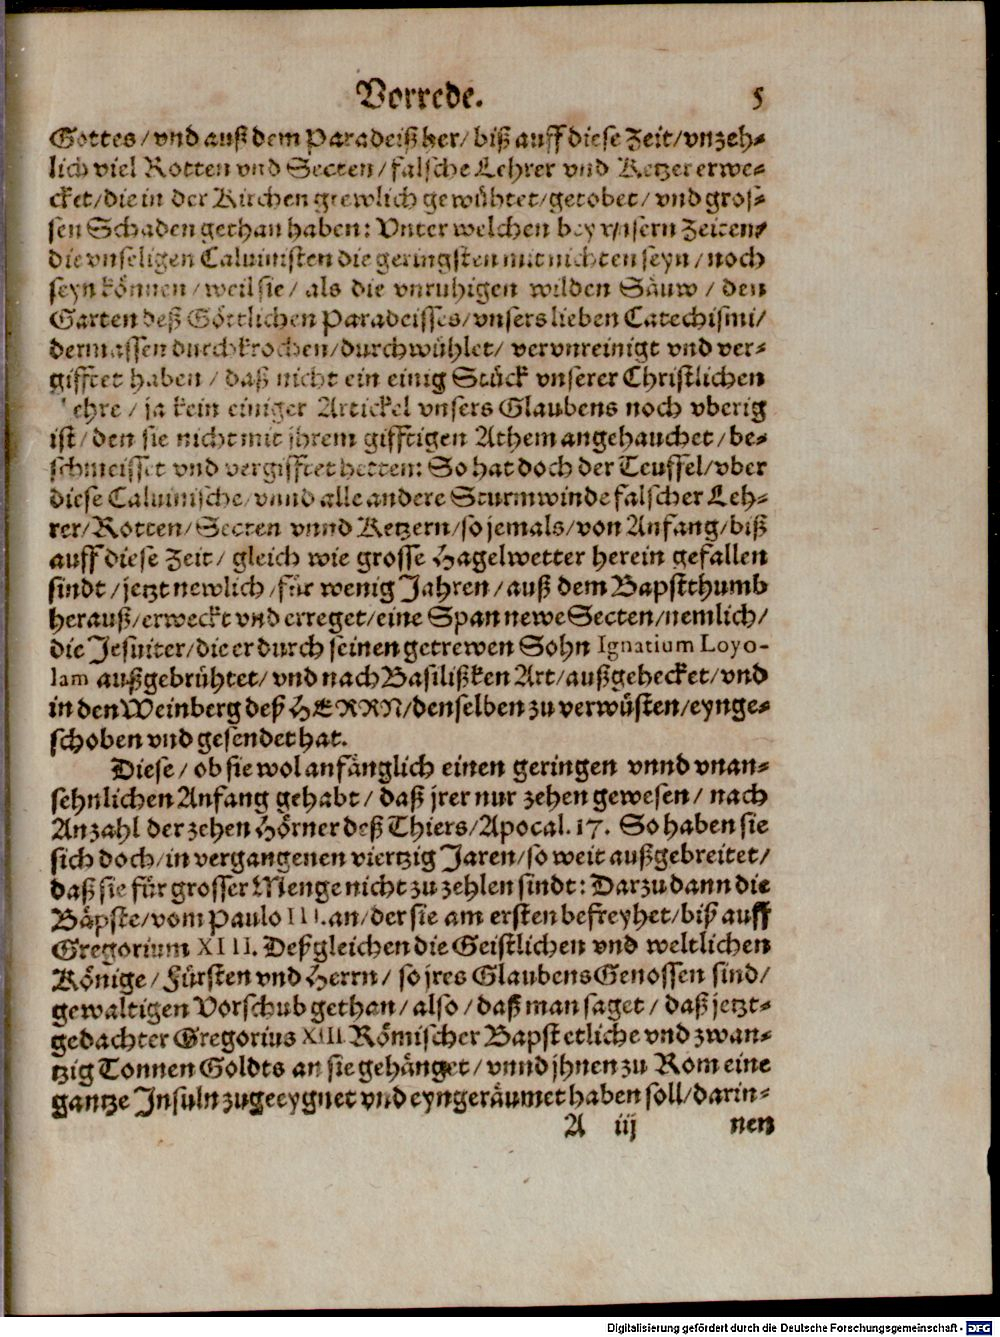 Vorrede. 5
Gottes/vnd auß dem Paradeiß her/ biß auff diese Zeit/vnzeh-
lich viel Rotten vnd Secten/falsche Lehrer vnd Ketzer erwe-
cket/die in der Kirchen grewlich gewühtet/getobet/ vnd gros-
sen Schaden gethan haben: Vnter welchen bey vnsern Zeiten/
die vnseligen Caluinisten die geringsten mit nichten seyn/noch
seyn können/weil sie/ als die vnruhigen wilden Säuw/ den
Garten deß Göttlichen Paradeisses/vnsers lieben Catechismi/
dermassen durchkrochen/durchwühlet/ vervnreinigt vnd ver-
gifftet haben/ daß nicht ein einig Stück vnserer Christlichen
ehre/ ja kein einiger Artickel vnsers Glaubens noch vberig
ist/ den sie nicht mit jhrem gifftigen Athem angehauchet/be-
schmeisset vnd vergifftet hetten: So hat doch der Teuffel/vber
diese Caluinische/vnnd alle andere Sturmwinde falscher Leh-
rer/Rotten/Secten vnnd Ketzern/so jemals/von Anfang/biß
auff diese Zeit/ gleich wie grosse Hagelwetter herein gefallen
sindt/jetzt newlich/für wenig Jahren/auß dem Bapstthumb
herauß/erweckt vnd erreget/eine Span newe Secten/nemlich/
die Jesuiter/die er durch seinen getrewen Sohn Ignatium Loyo-
lam außgebrühtet/vnd nach Basilißken Art/außgehecket/vnd
in den Weinberg deß HERRN/denselben zu verwüsten/eynge-
schoben vnd gesendet hat.
Diese/ ob sie wol anfänglich einen geringen vnnd vnan-
sehnlichen Anfang gehabt/ daß jrer nur zehen gewesen/ nach
Anzahl der zehen Hörner deß Thiers/Apocal. 17. So haben sie
sich doch/in vergangenen viertzig Jaren/so weit außgebreitet/
daß sie für grosser Menge nicht zu zehlen sindt: Darzu dann die
Bäpste/vom Paulo III. an/der sie am ersten befreyhet/biß auff
Gregorium XIII. Deßgleichen die Geistlichen vnd weltlichen
Könige/Fürsten vnd Herrn/ so jres Glaubens Genossen sind/
gewaltigen Vorschub gethan/ also/ daß man saget/ daß jetzt-
gedachter Gregorius XIII. Römischer Bapst etliche vnd zwan-
tzig Tonnen Goldts an sie gehänget/ vnnd jhnen zu Rom eine
gantze Insuln zugeeygnet vnd eyngeräumet haben soll/darin-
A iij nen
Digitalisierung gefördert durch die Deutsche Forschungsgemeinschaft - DFG